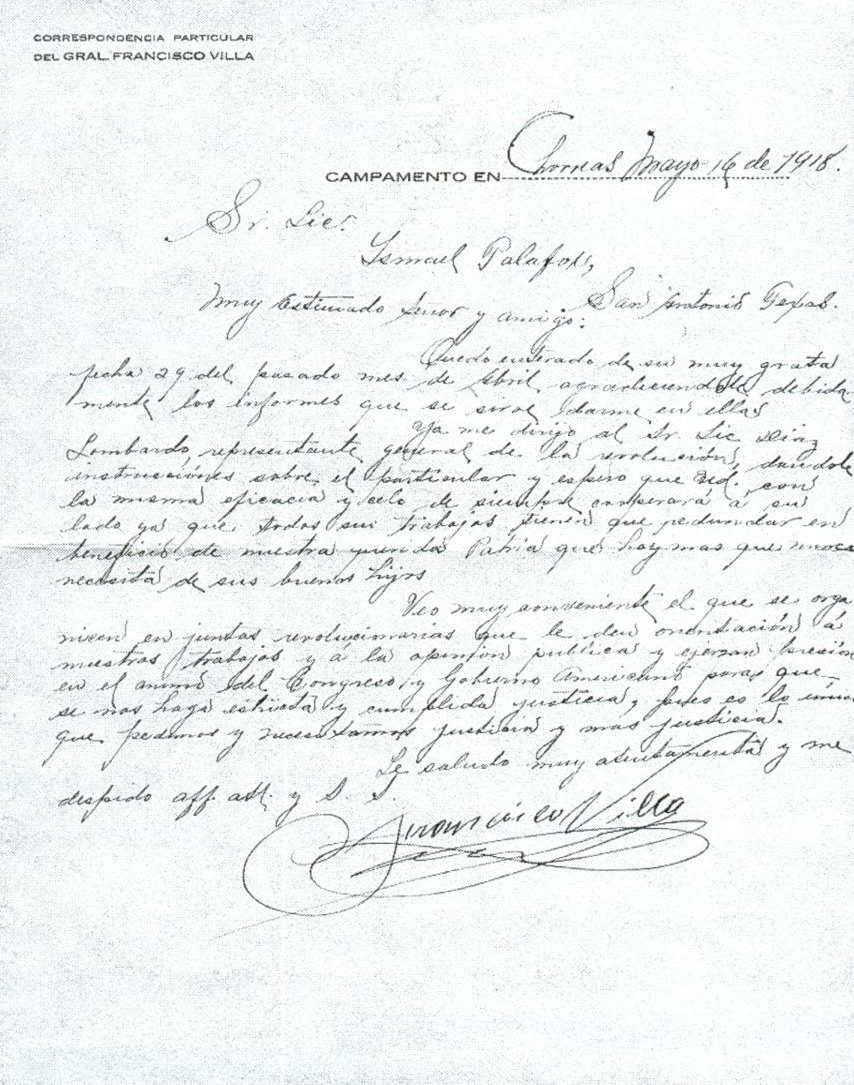 CORRESPONDENCIA PARTICULAR
DEL GRAL. FRANCISCO VILLA
CAMPAMENTO EN Chorreas Mayo 16 de 1918.
Sr. Lic.
Ismael Palafox,
San Antonio Texas.
Muy estimado señor y amigo:
Quedo enterado de su muy grata
fecha 29 del pasado mes de Abril, agradeciendole debida
mente los informes que se sirve darme en ella
Ya me dirijo al Sr. Lic Diaz
Lombardo, representante general de la revolución, dandole
instrucciones sobre el particular y espero que Ud. con
la misma eficacia y celo de siempre cooperará á su
lado ya que todos sus trabajos tienen que redundar en
beneficio de nuestra querida Patria que hoy mas que nunca
necesita de sus buenos hijos
Veo muy conveniente el que se orga
nicen en juntas revolucionarias que le den orientación á
nuestros trabajos y á la opinión publica y ejerzan presión
en el animo del Congreso y Gobierno Americano para que
se nos haga estricta y cumplida justicia, pues es lo unico
que pedimos y necesitamos justicia y mas justicia.
Le saludo muy atentamente y me
despido aff. att. y S. S.
Francisco Villa